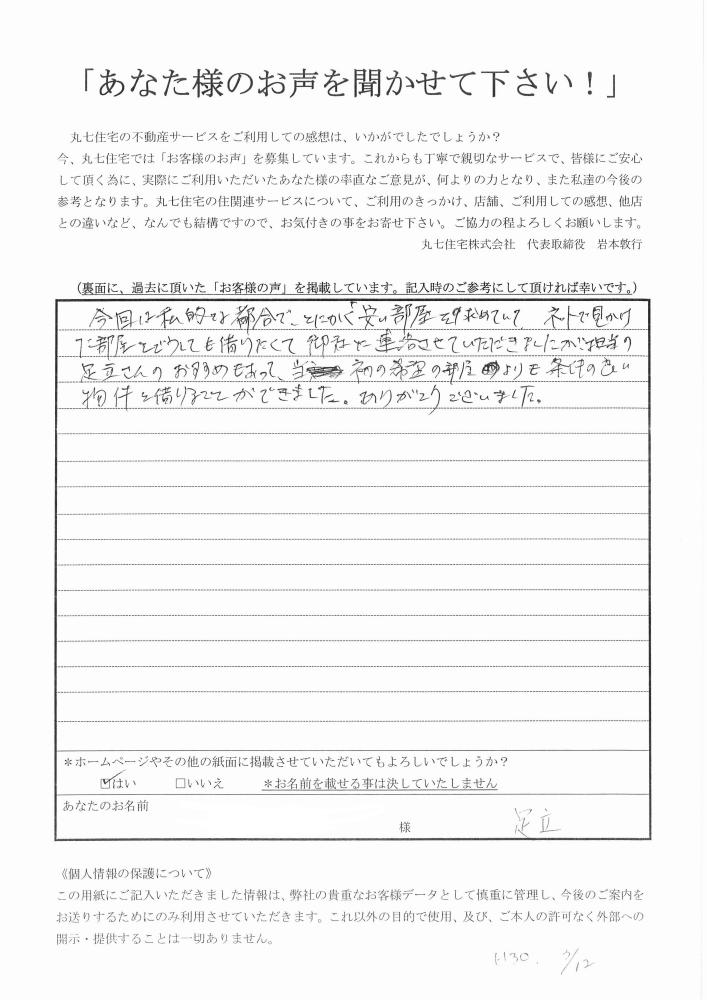 「あなた様のお声を聞かせて下さい！」
丸七住宅の不動産サービスをご利用しての感想は、いかがでしたでしょうか？
今、丸七住宅では「お客様のお声」を募集しています。これからも丁寧で親切なサービスで、皆様にご安心
して頂く為に、実際にご利用いただいたあなた様の率直なご意見が、何よりの力となり、また私達の今後の
参考となります。丸七住宅の住関連サービスについて、ご利用のきっかけ、店舗、ご利用しての感想、他店
との違いなど、なんでも結構ですので、お気付きの事をお寄せ下さい。ご協力の程よろしくお願いします。
丸七住宅株式会社　代表取締役　岩本敦行
（裏面に、過去に頂いた「お客様の声」を掲載しています。記入時のご参考にして頂ければ幸いです。）
今回は私的な都合で、とにかく「安い部屋」を求めていて、ネットで見かけ
た部屋をどうしても借りたくて御社に連絡させていただきましたが担当の
足立さんのおすすめもあって、当初の希望の部屋よりも条件の良い
物件を借りることができました。ありがとうございました。
＊ホームページやその他の紙面に掲載させていただいてもよろしいでしょうか？
☑はい　□いいえ　＊お名前を載せる事は決していたしません
あなたのお名前
様　足立
《個人情報の保護について》
この用紙にご記入いただきました情報は、弊社の貴重なお客様データとして慎重に管理し、今後のご案内を
お送りするためにのみ利用させていただきます。これ以外の目的で使用、及び、ご本人の許可なく外部への
開示・提供することは一切ありません。
H30. 3/12